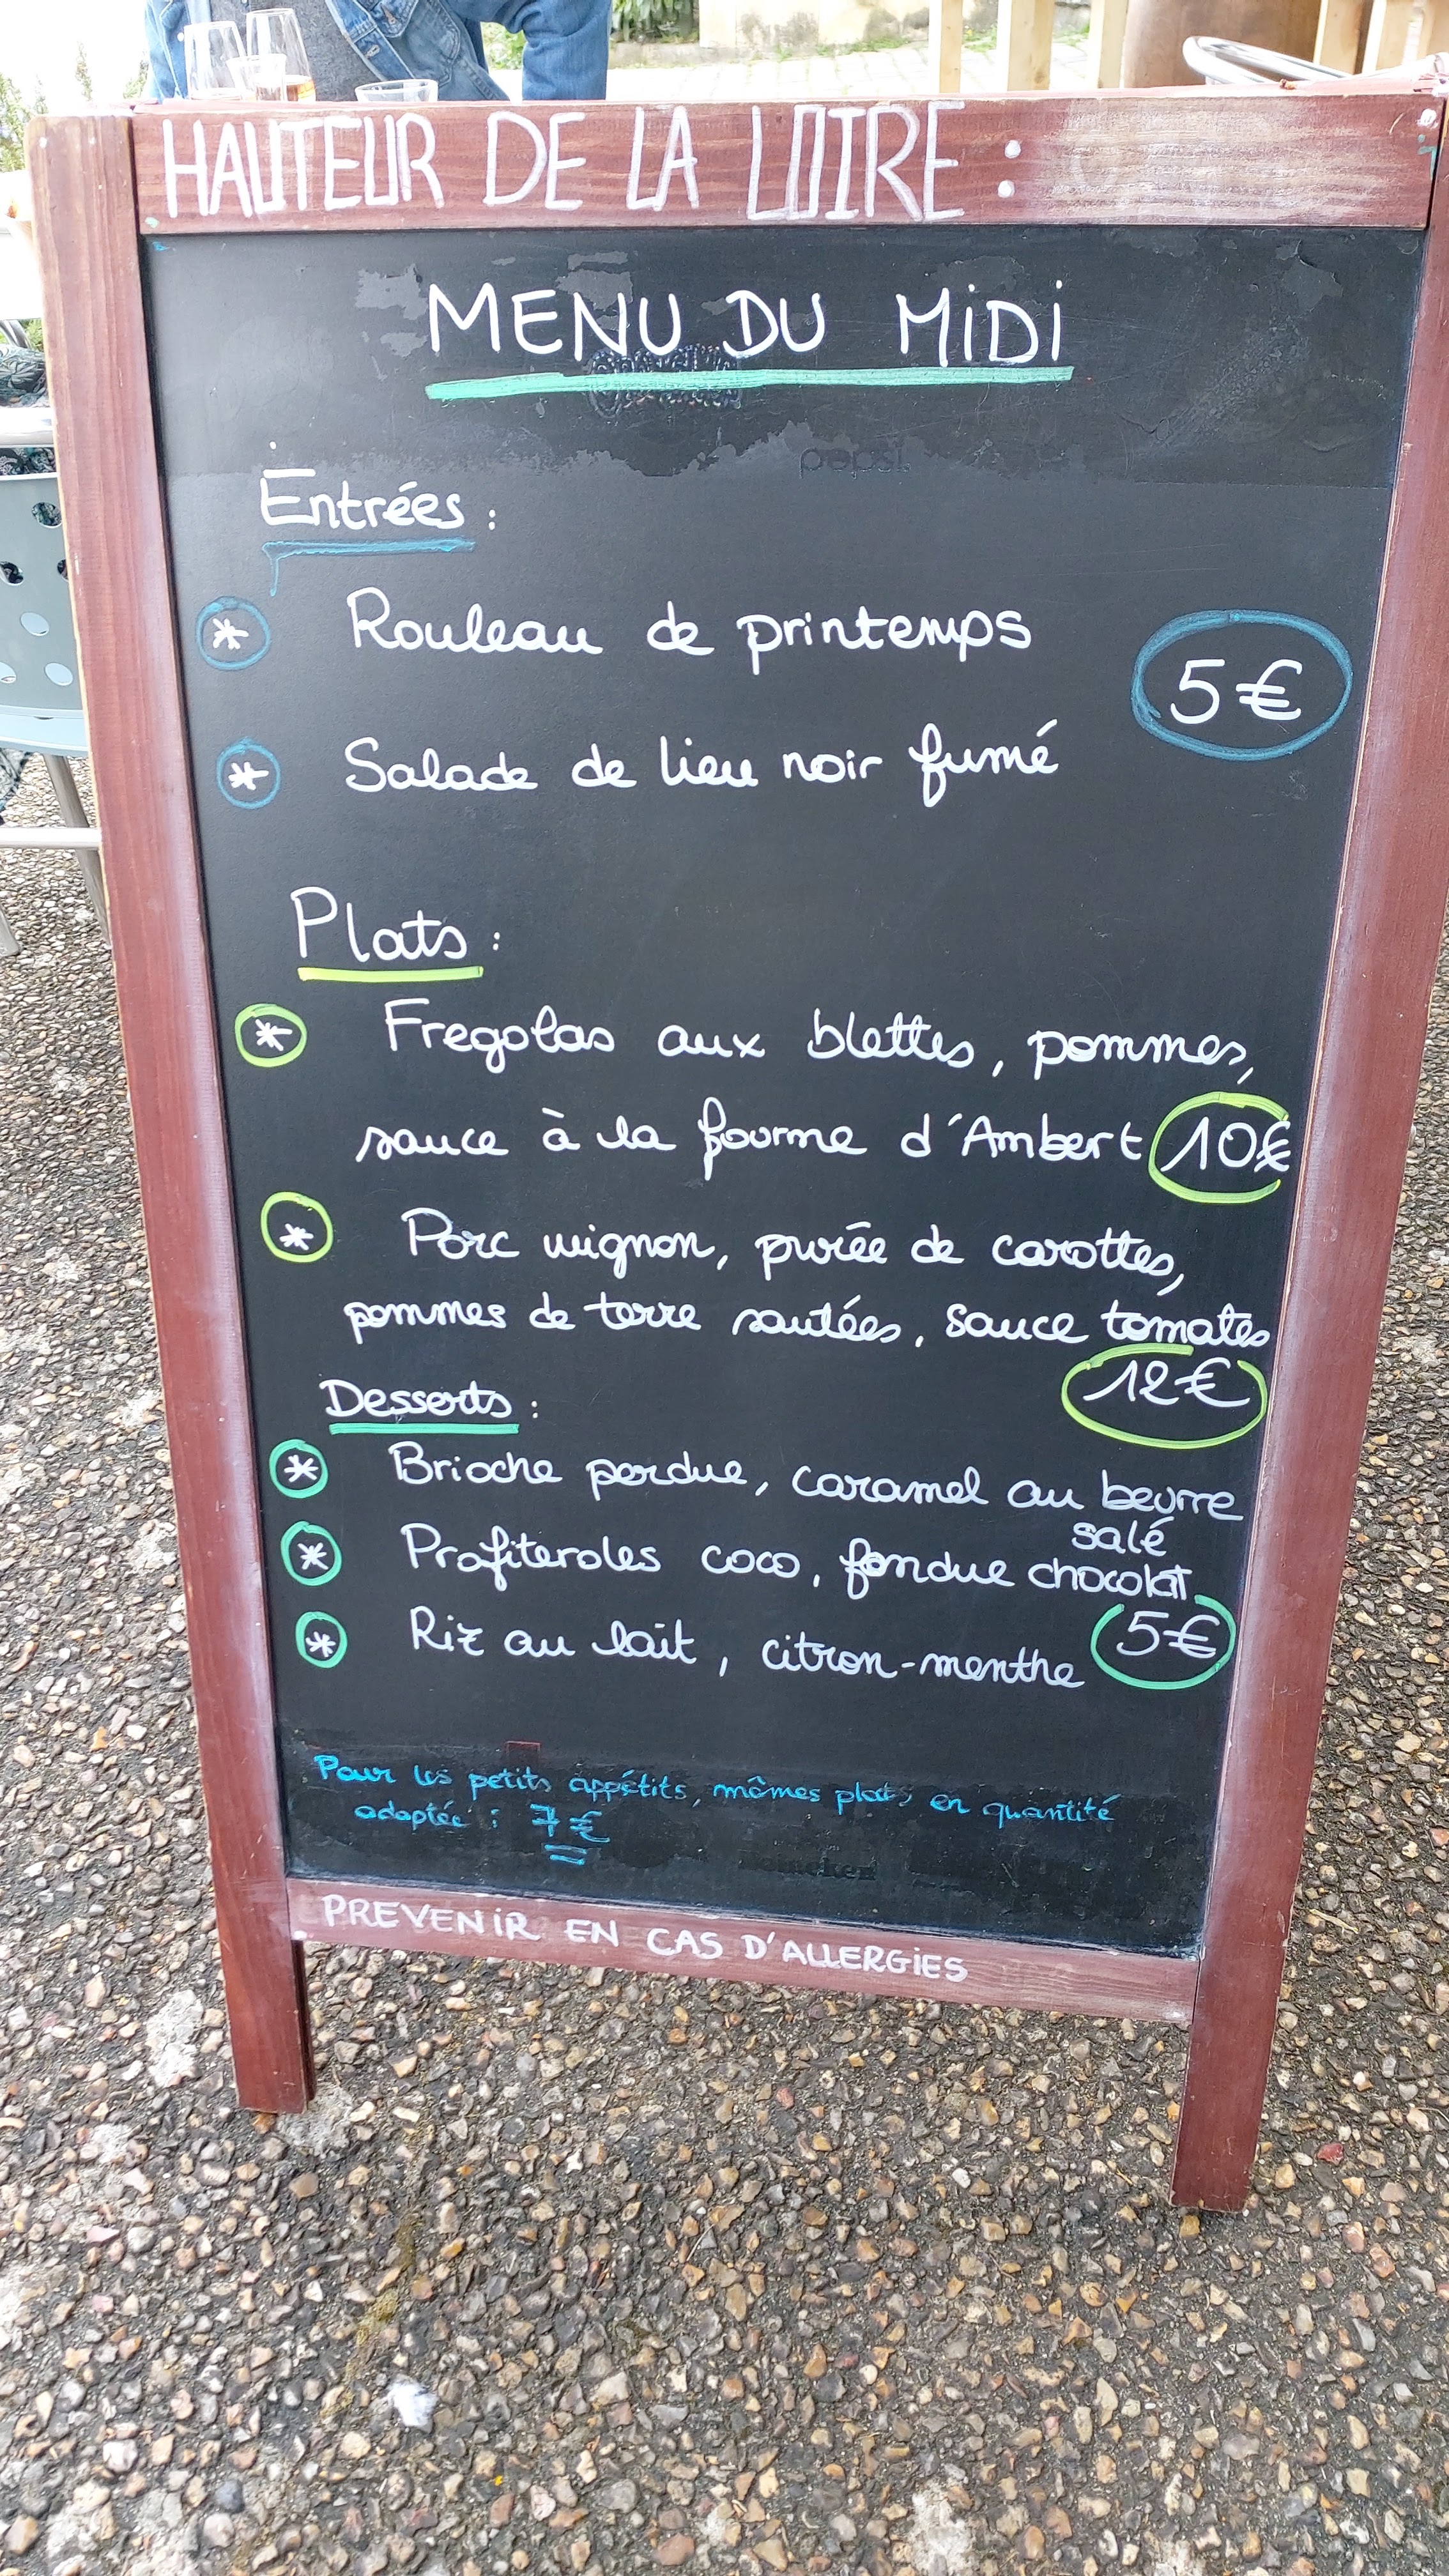 HAUTEUR DE LA LOIRE :
MENU DU MiDi
pepsi
Entrées :
* Rouleau de printemps
5€
* Salade de lieu noir fumé
Plats :
* Fregolas aux blettes, pommes,
sauce à la fourme d'Ambert 10€
* Porc mignon, purée de carottes,
pommes de terre sautées, sauce tomates
12€
Desserts :
* Brioche perdue, caramel au beurre
salé
* Profiteroles coco, fondue chocolat
* Riz au lait, citron-menthe 5€
Pour les petits appétits, mêmes plats, en quantité
adaptée : 7€
Heineken
PREVENiR EN CAS D'ALLERGiES